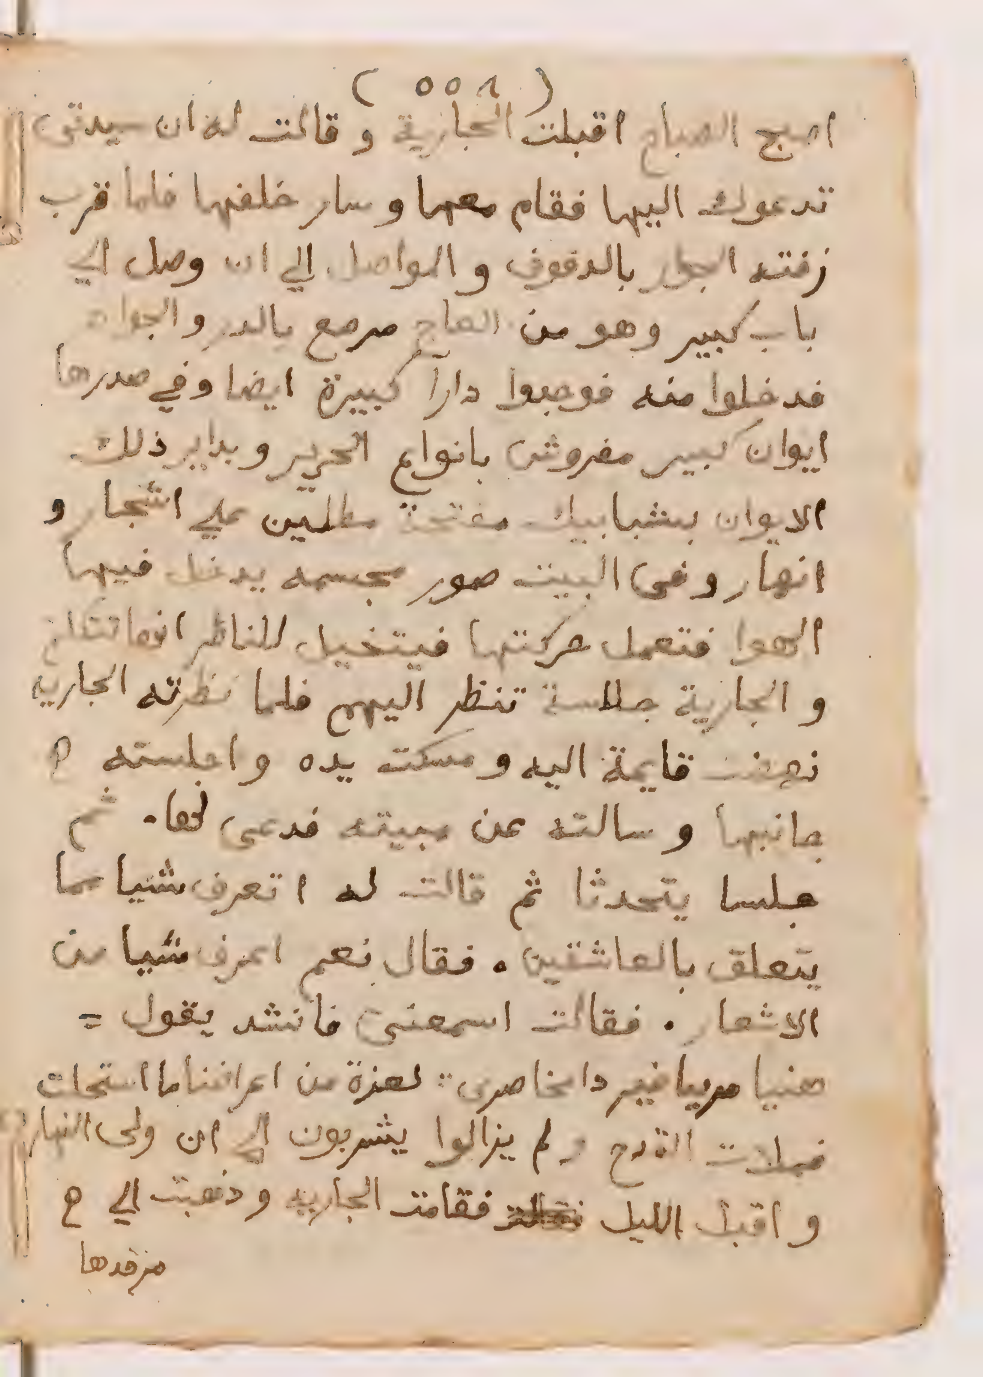 ( ٥٥٨ )
اصبح الصباح اقبلت الجارية و قالت له ان سيدتى
تدعوك اليها فقام معها وسار خلفها فلما قرب
زفته الجوار بالدفوف و المواصل الي ان وصل الي
باب كبير وهو من العاج مرصع بالدر و الجواهر
فدخلوا منه فوجدوا دارآ كبيرة ايضا وفي صدرها
ايوان كبير مفروش بانواع الحرير وبداير ذلك
الايوان بشبابيك مفتحة مطلين علي اشجار و
انهار وفى البيت صور مجسمه يدخل فيها
الهوا فتعمل حركتها فيتخيل للناظر انها تتكلم
و الجارية جالسة تنظر اليهم فلما نظرته الجاريه
نهضت قايمة اليه ومسكت يده واجلسته
جانبها و سالته عن مبيته فدعى لها. ثم
جلسا يتحدثا ثم قالت له اتعرف شيا مما
يتعلق بالعاشقين . فقال نعم اعرف شيا من
الاشعار . فقالت اسمعنى فانشد يقول =
هنيا مريا غير دا مخاصرى : لعزة من اعراضنا ما استحلت
فملات القدح و لم يزالوا يشربون الي ان ولى النهار
و اقبل الليل فقامت الجاريه وذهبت الي
مرقدها